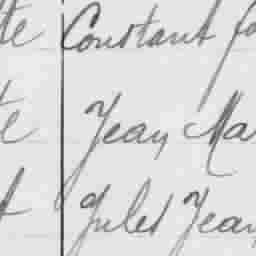 te Constant fo
te Jean Ma
t Jules Jean